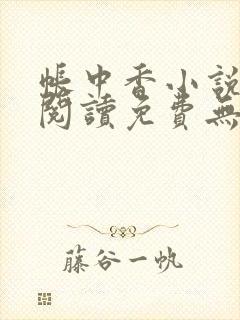 帳中香小說
閱讀免費無
藤谷一帆